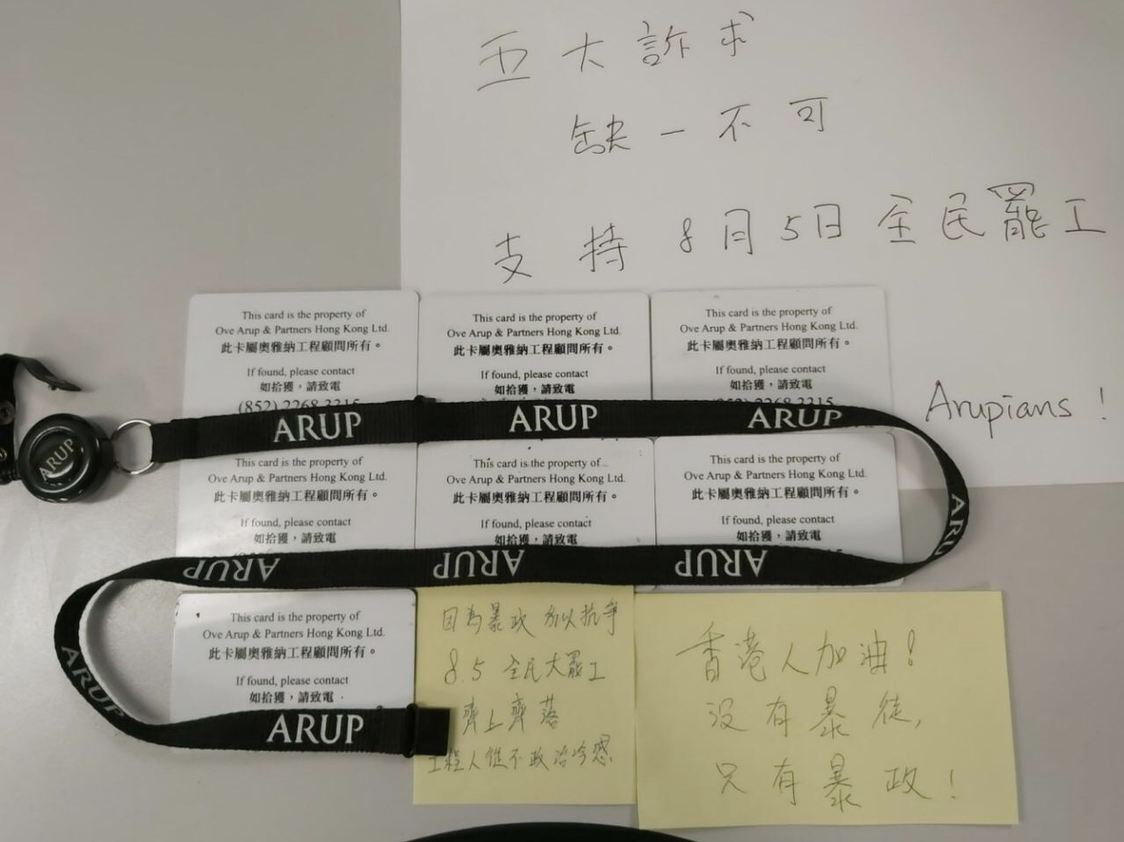 五大訴求
缺一不可
支持8月5日全民罷工
Arupians !
This card is the property of
Ove Arup & Partners Hong Kong Ltd.
此卡屬奧雅納工程顧問所有。
If found, please contact
如拾獲，請致電
(852) 2268 3215
This card is the property of
Ove Arup & Partners Hong Kong Ltd.
此卡屬奧雅納工程顧問所有。
If found, please contact
如拾獲，請致電
This card is the property of
Ove Arup & Partners Hong Kong Ltd.
此卡屬奧雅納工程顧問所有。
If found, please contact
如拾獲，請致電
2268 3215
ARUP
ARUP
ARUP
ARUP
This card is the property of
Ove Arup & Partners Hong Kong Ltd.
此卡屬奧雅納工程顧問所有。
If found, please contact
如拾獲，請致電
This card is the property of
Ove Arup & Partners Hong Kong Ltd.
此卡屬奧雅納工程顧問所有。
If found, please contact
如拾獲，請致電
This card is the property of
Ove Arup & Partners Hong Kong Ltd.
此卡屬奧雅納工程顧問所有。
If found, please contact
如拾獲，請致電
ARUP
ARUP
ARUP
ARUP
This card is the property of
Ove Arup & Partners Hong Kong Ltd.
此卡屬奧雅納工程顧問所有。
If found, please contact
如拾獲，請致電
ARUP
ARUP
因為暴政 所以抗爭
8.5 全民大罷工
齊上齊落
工程人從不政治冷感
香港人加油！
沒有暴徒，
只有暴政！